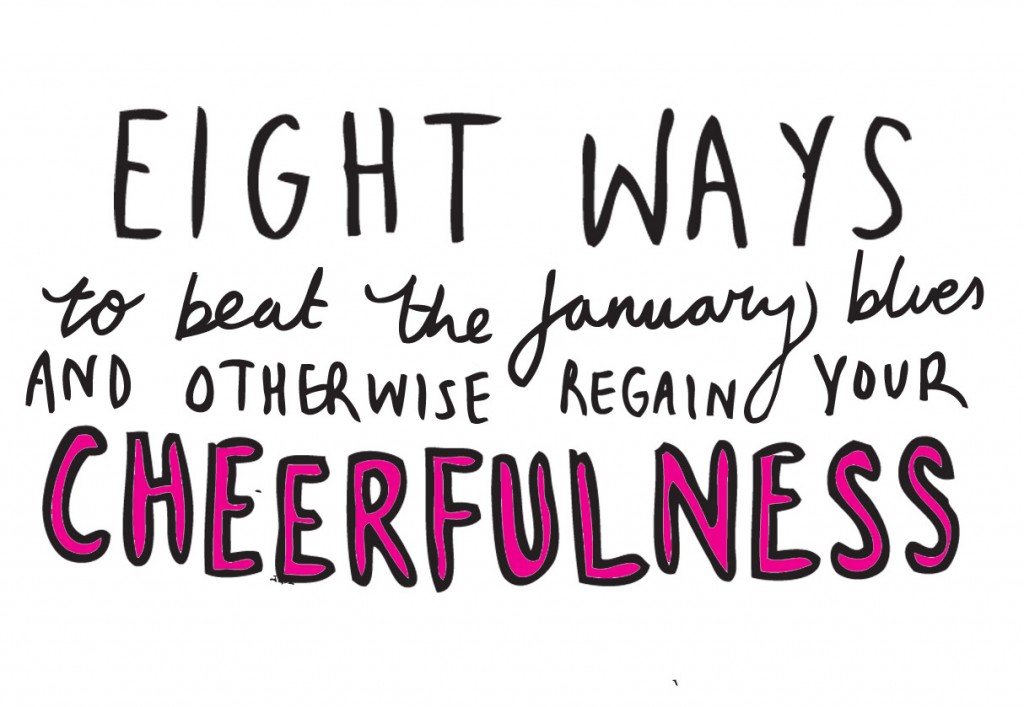 EIGHT WAYS
to beat the January blues
AND OTHERWISE REGAIN YOUR
CHEERFULNESS